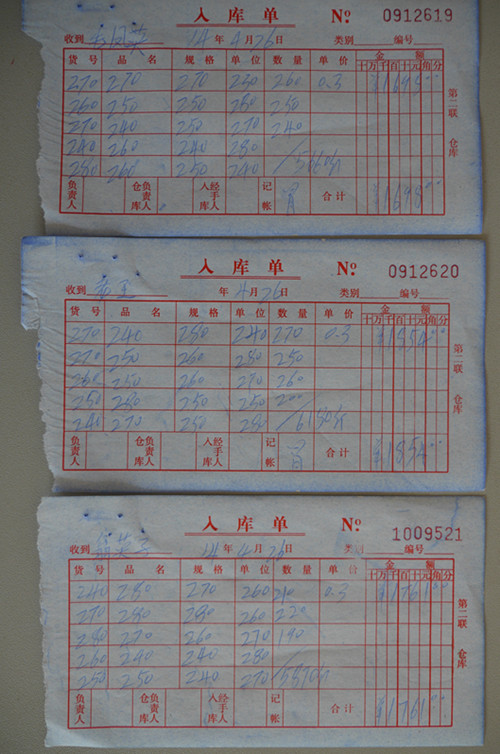 入库单 № 0912619
收到 14年4月26日 类别 编号
货号 品名 规格 单位 数量 单价 金额
十万千百十元角分
270 270 270 230 260 0.3 ¥169800
260 250 250 260 250
270 240 250 270 240
240 260 240 280
280 260 250 240 /5660斤
负责人 仓库负责人 入库经手人 记帐 合计 ¥169800
第二联 仓库
入库单 № 0912620
收到 年4月26日 类别 编号
货号 品名 规格 单位 数量 单价 金额
十万千百十元角分
270 240 280 240 270 0.3 ¥185400
270 250 260 280 250
260 250 260 270 260
250 280 250 250 200
240 270 250 280 /6180斤
负责人 仓库负责人 入库经手人 记帐 合计 ¥185400
第二联 仓库
入库单 № 1009521
收到 14年4月26日 类别 编号
货号 品名 规格 单位 数量 单价 金额
十万千百十元角分
240 280 270 260 210 0.3 ¥176100
270 280 280 260 220
280 270 260 270 190
260 240 240 280
250 250 240 270 /5870斤
负责人 仓库负责人 入库经手人 记帐 合计 ¥176100
第二联 仓库